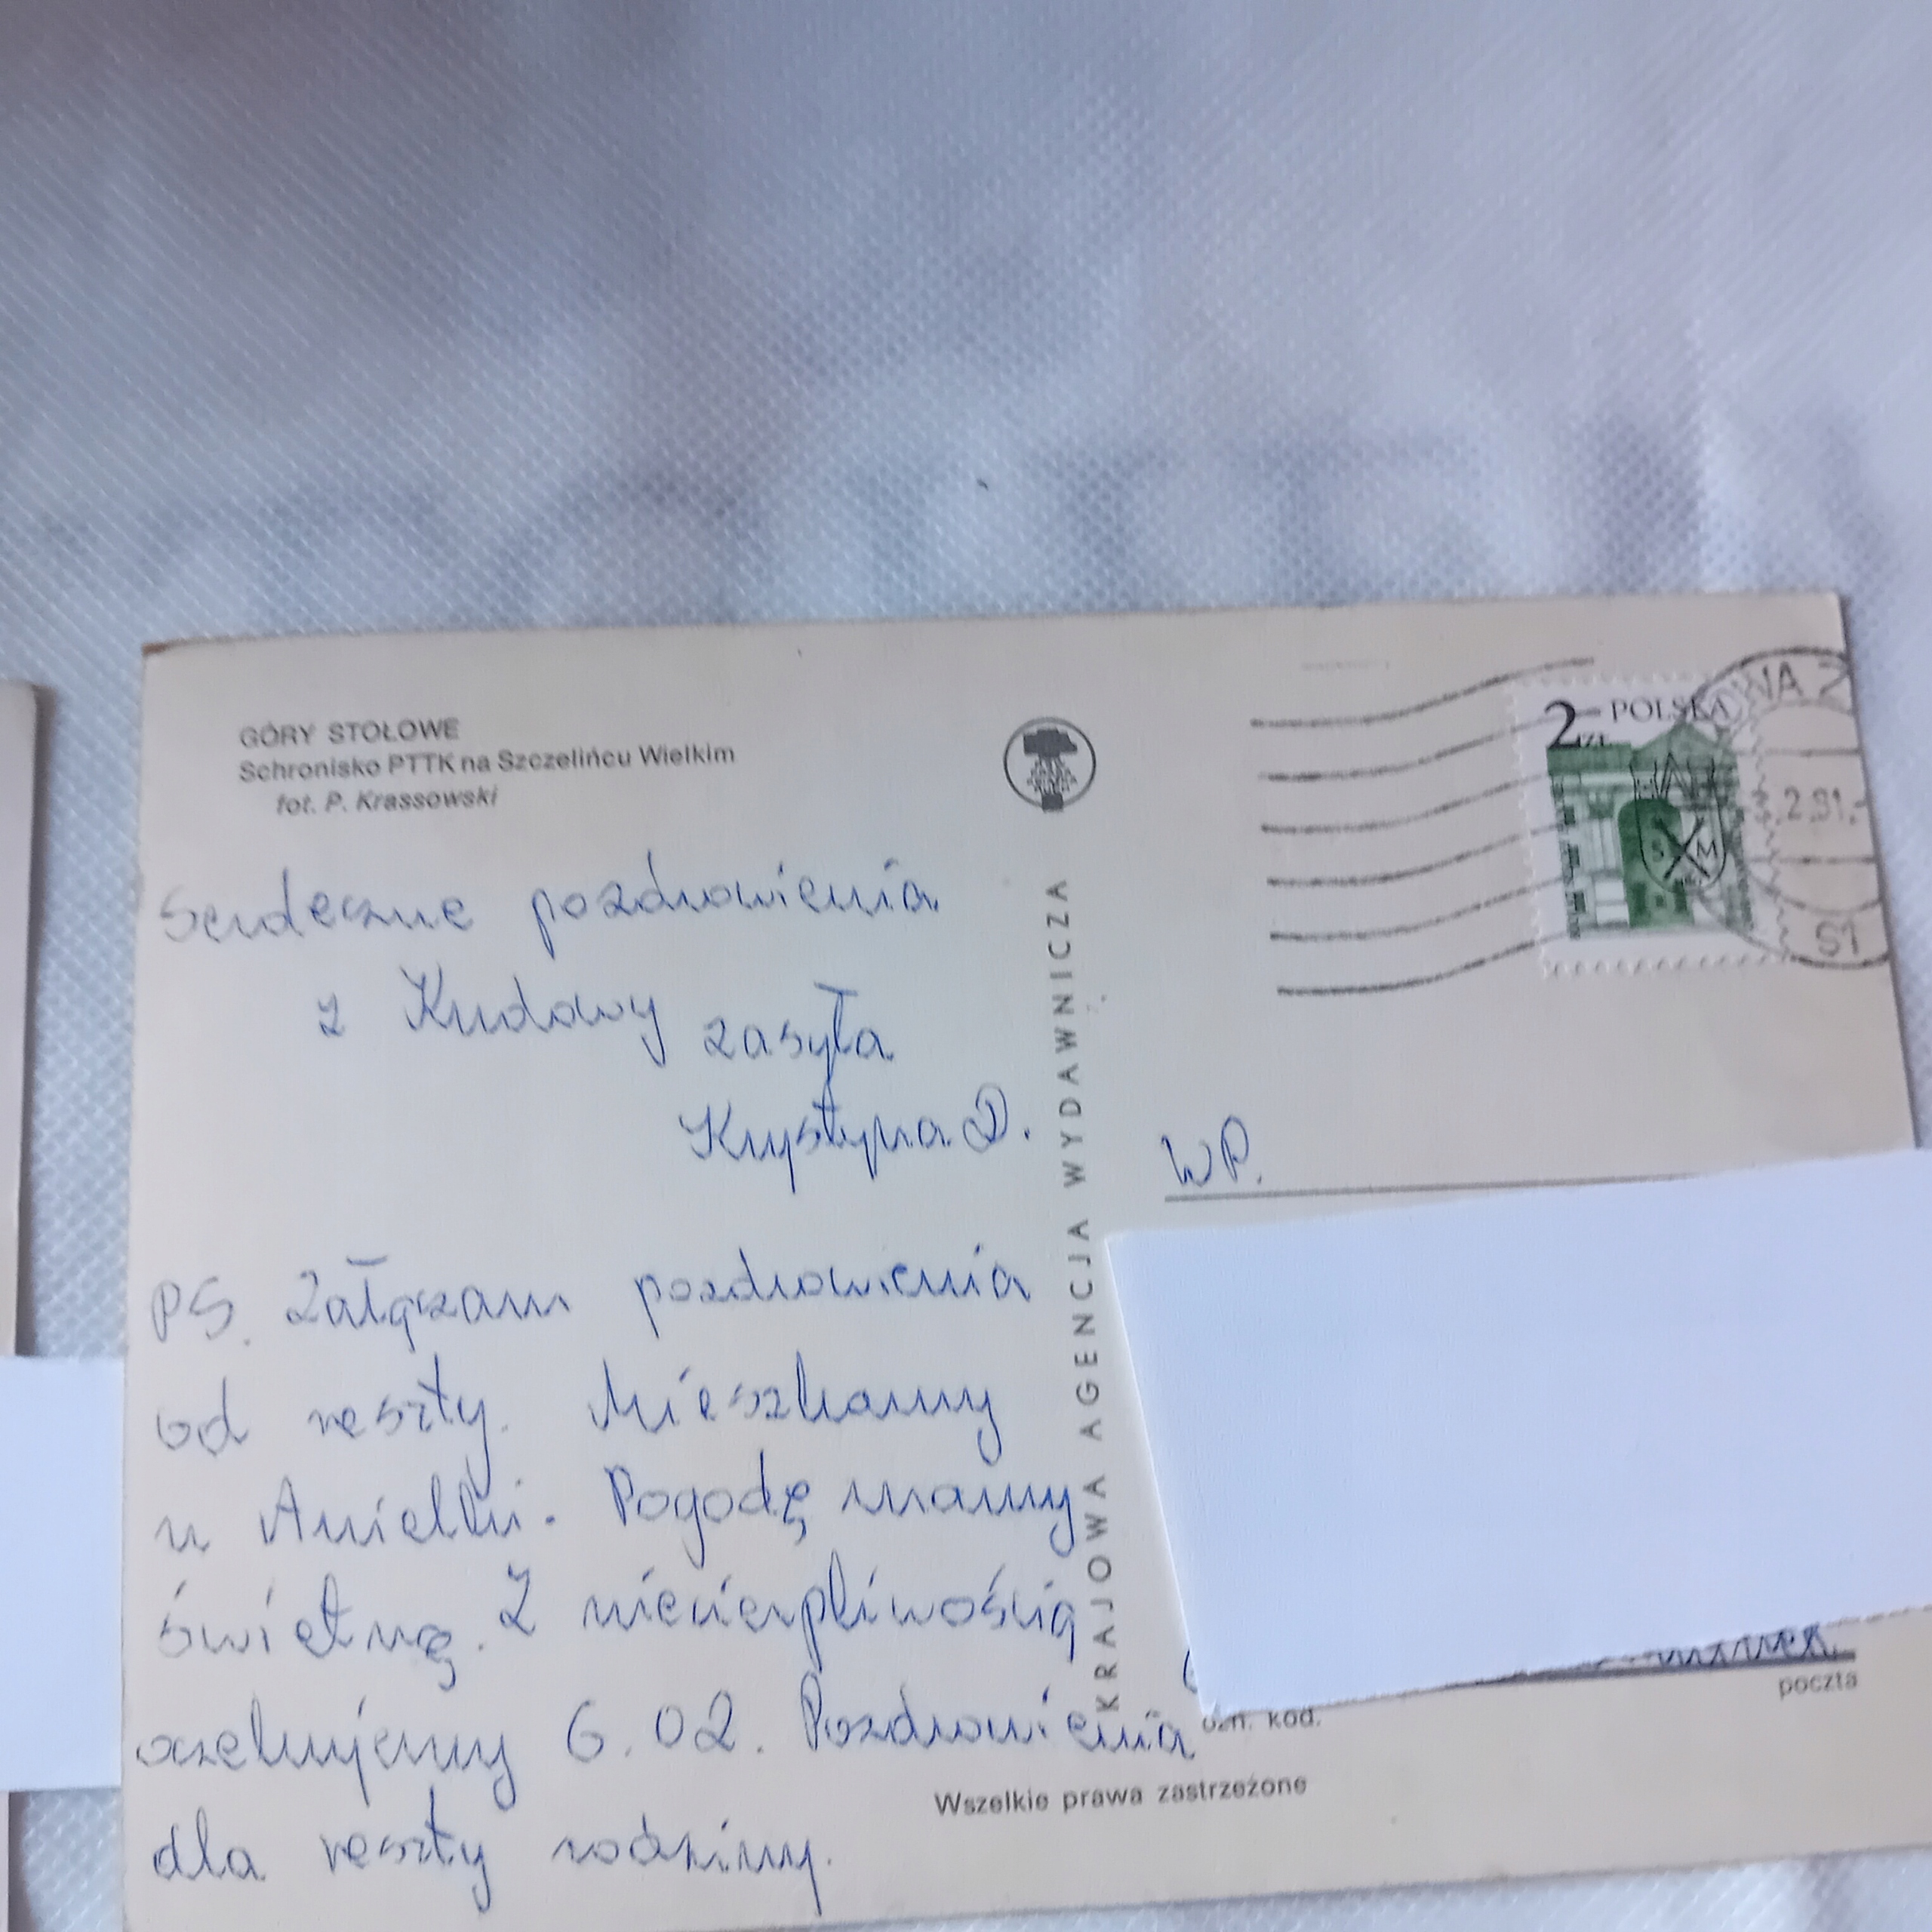 GÓRY STOŁOWE
Schronisko PTTK na Szczelińcu Wielkim
fot. P. Krassowski
Serdeczne pozdrowienia
z Kudowy zasyła
Krystyna D.
PS. Załączam pozdrowienia
od reszty. Mieszkamy
u Anielki. Pogodę mamy
świetną. Z niecierpliwością
oczekujemy 6.02. Pozdrowienia
dla reszty rodziny.
KRAJOWA AGENCJA WYDAWNICZA
2 ZŁ POLSKA
S M
.2.81.-
S1
WP.
ozn. kod.
poczta
Wszelkie prawa zastrzeżone